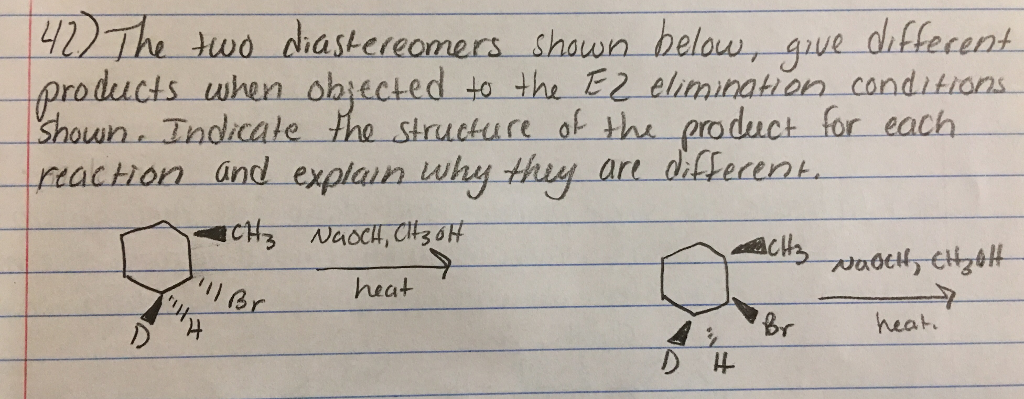 42) The two diastereomers shown below, give different
products when objected to the E2 elimination conditions
shown. Indicate the structure of the product for each
reaction and explain why they are different.
CH3 NaOCH, CH3OH
Br heat
D H
CH3 NaOCH, CH3OH
Br heat.
D H